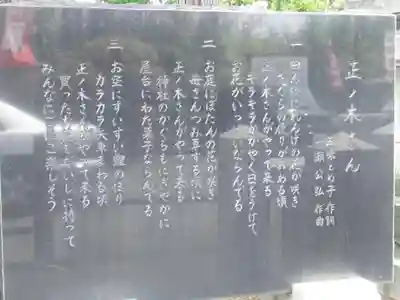 正ノ木さん
とめ子 作詞
一瀬 公弘 作曲
一 田んぼにれんげの花が咲き
つばくらの便りが 頃
正ノ木さんがやって来る
キラキラかがやく日をうけて
お花がいっぱいならんでる
二 お庭にぼたんの花が咲き
母さんつみ草する頃に
正ノ木さんがやって来る
神社のかぐらもにぎやかに
屋台にわた菓子ならんでる
三 お空にすいすい鯉のぼり
カラカラ矢車まわる頃
正ノ木さんがやって来る
買った に持って
みんなに 差しそう